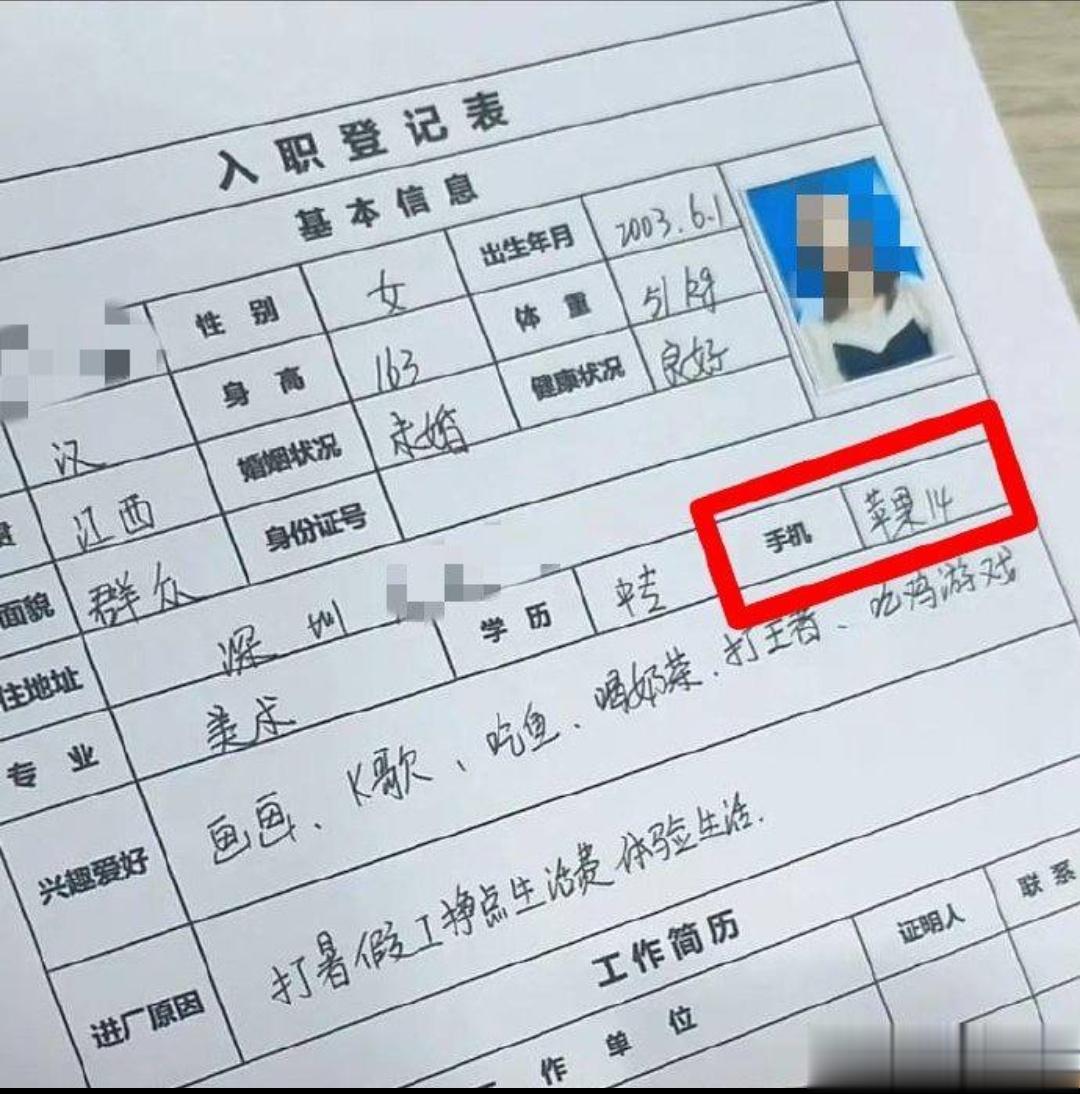 入职登记表
基本信息
性别 女 出生年月 2003.6.1
身高 163 体重 51kg
汉 婚姻状况 未婚 健康状况 良好
江西 身份证号
面貌 群众 手机 苹果14
住地址 深圳 学历 中专
专业 美术
兴趣爱好 画画、K歌、吃鱼、喝奶茶、打王者、吃鸡游戏
进厂原因 打暑假工挣点生活费 体验生活.
工作简历
作单位 证明人 联系